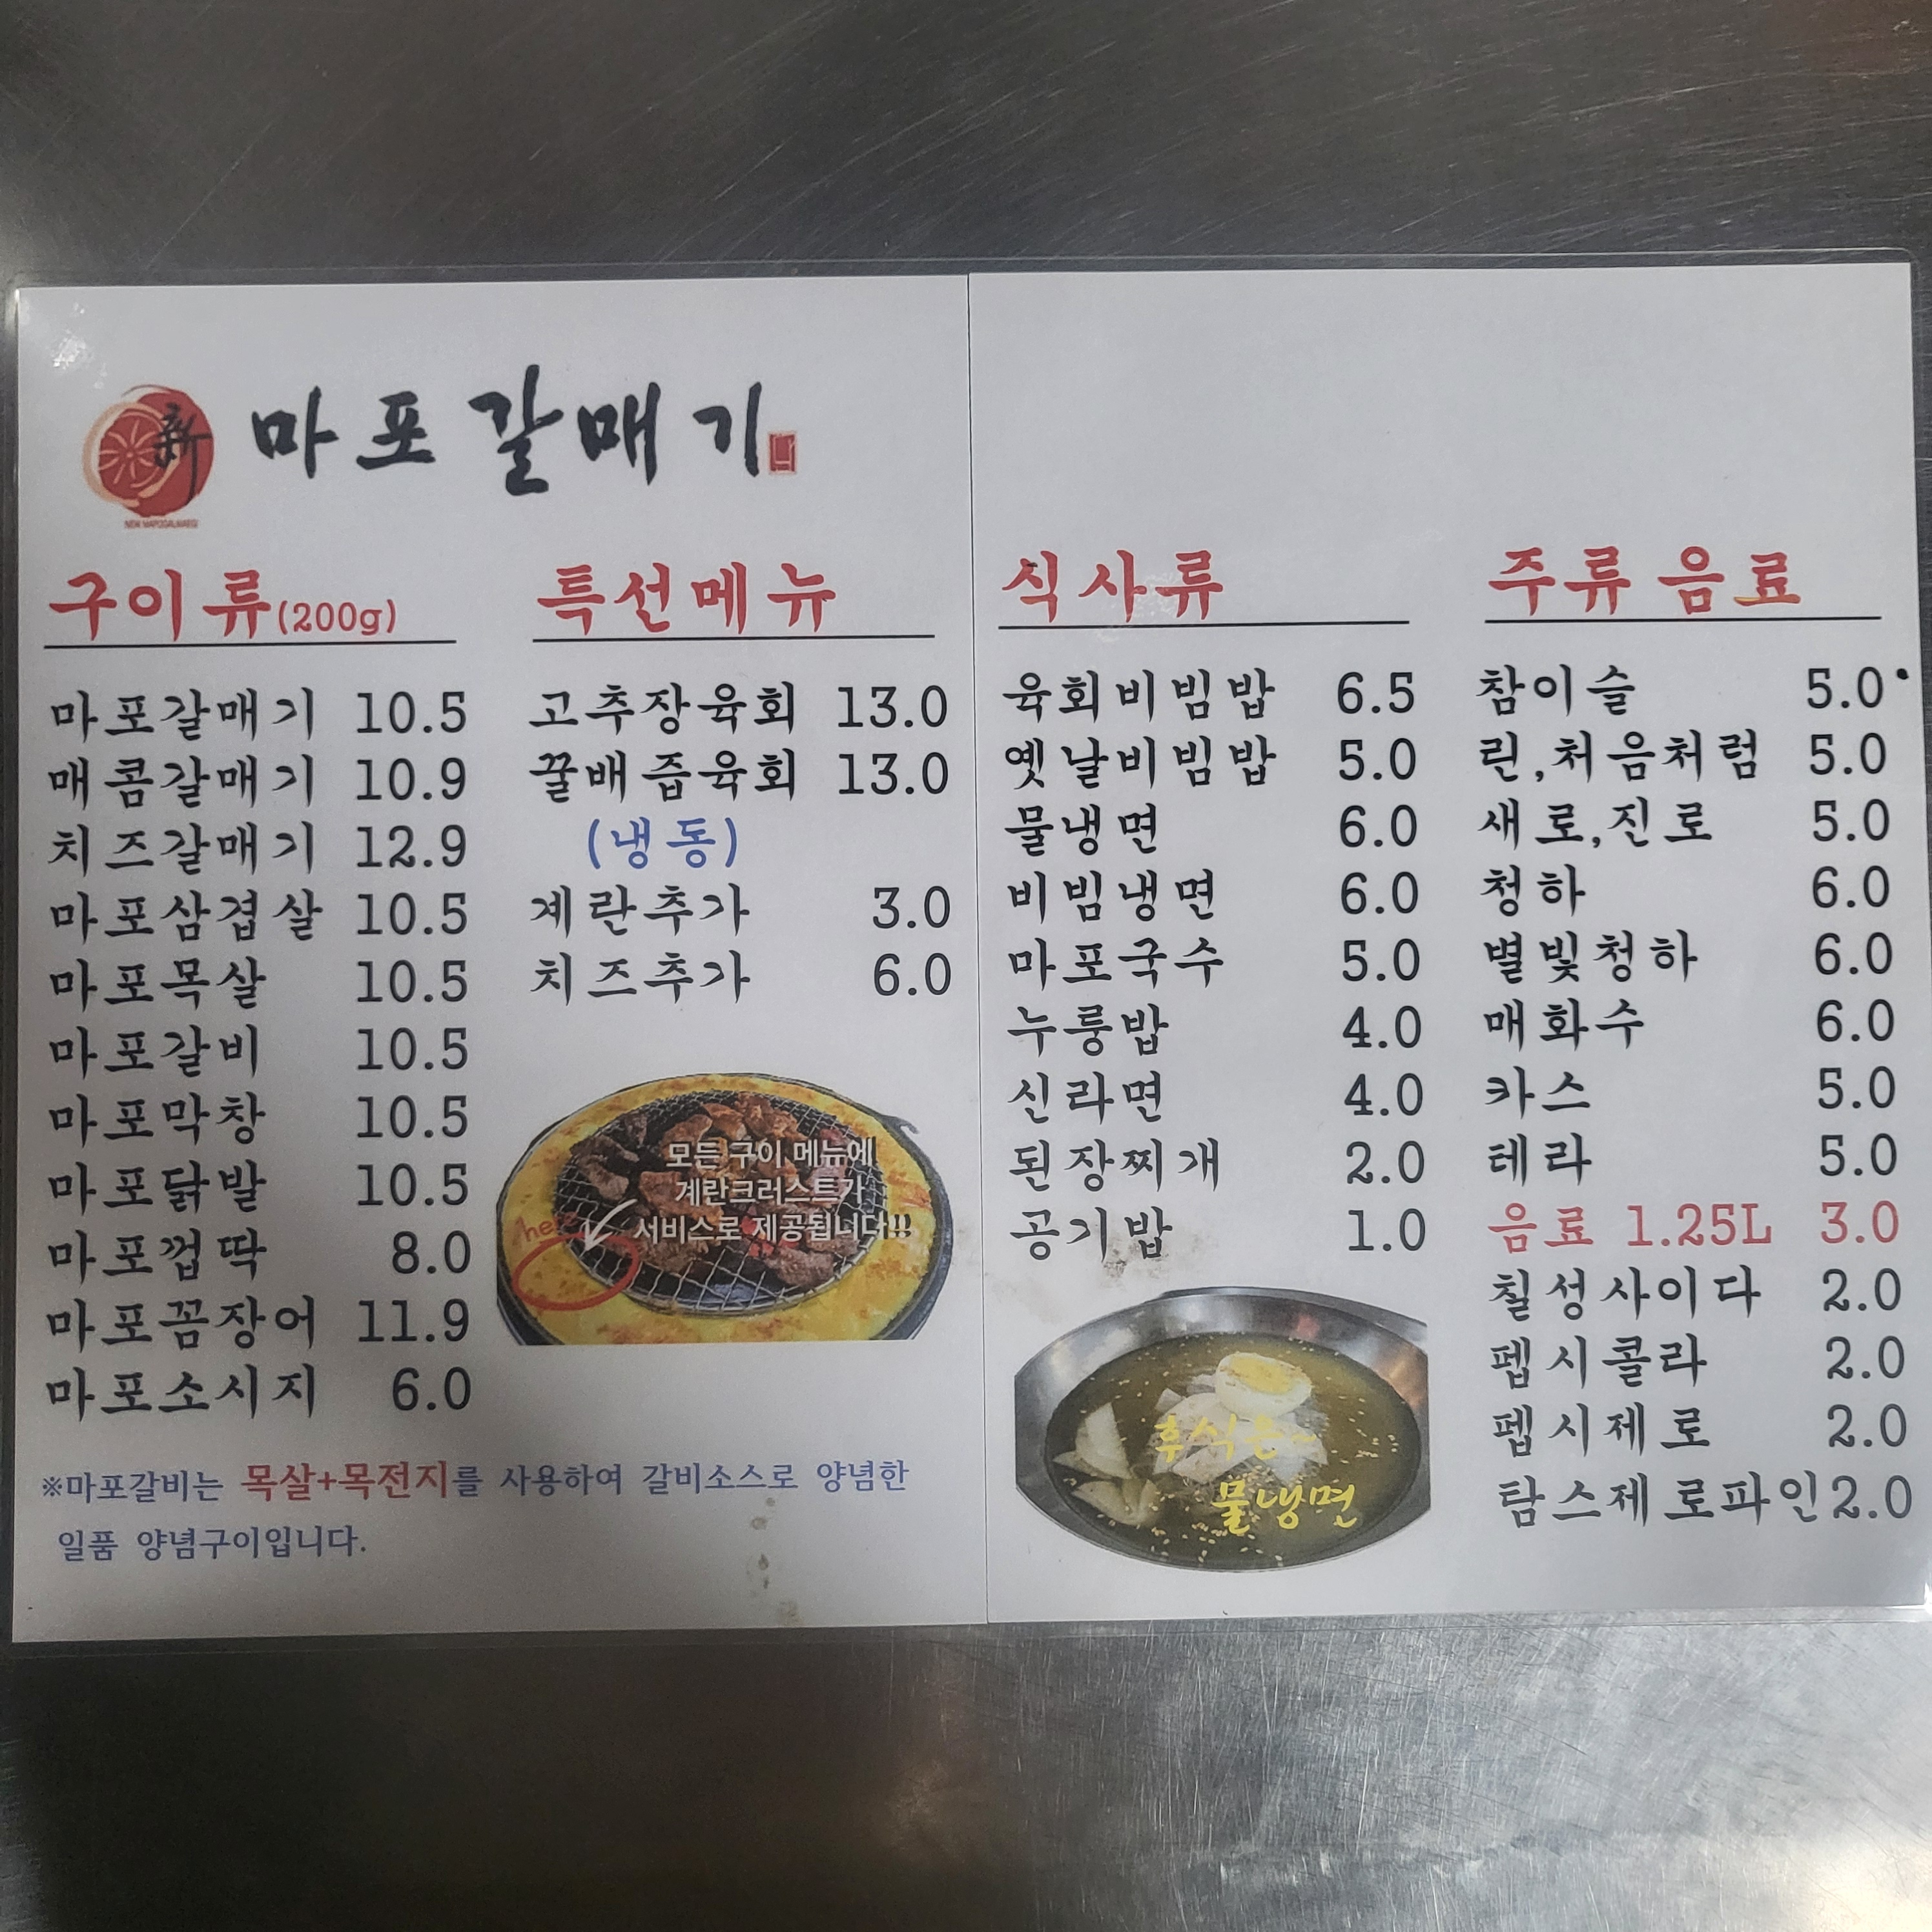 新
NEW MAPOGALMAEGI
마포갈매기
구이류(200g)
마포갈매기 10.5
매콤갈매기 10.9
치즈갈매기 12.9
마포삼겹살 10.5
마포목살 10.5
마포갈비 10.5
마포막창 10.5
마포닭발 10.5
마포껍딱 8.0
마포꼼장어 11.9
마포소시지 6.0
특선메뉴
고추장육회 13.0
꿀배즙육회 13.0
(냉동)
계란추가 3.0
치즈추가 6.0
모든 구이 메뉴에
계란크러스트가
서비스로 제공됩니다!!
here
※마포갈비는 목살+목전지를 사용하여 갈비소스로 양념한
일품 양념구이입니다.
식사류
육회비빔밥 6.5
옛날비빔밥 5.0
물냉면 6.0
비빔냉면 6.0
마포국수 5.0
누룽밥 4.0
신라면 4.0
된장찌개 2.0
공기밥 1.0
후식은~
물냉면
주류 음료
참이슬 5.0
린,처음처럼 5.0
새로,진로 5.0
청하 6.0
별빛청하 6.0
매화수 6.0
카스 5.0
테라 5.0
음료 1.25L 3.0
칠성사이다 2.0
펩시콜라 2.0
펩시제로 2.0
탐스제로파인 2.0